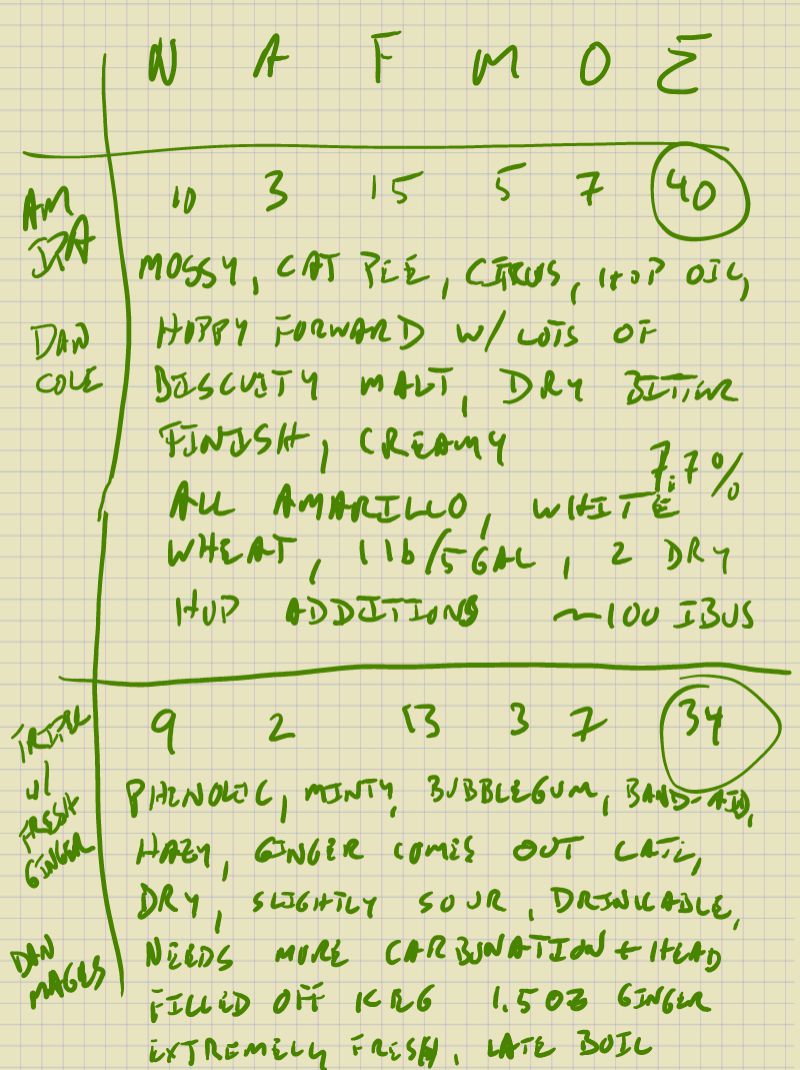 N A F M O Σ
AM IPA
10 3 15 5 7 40
MOSSY, CAT PEE, CITRUS, HOP OIL,
DAN COLE
HOPPY FORWARD W/ LOTS OF
BISCUITY MALT, DRY BITTER
FINISH, CREAMY
7.7%
ALL AMARILLO, WHITE
WHEAT, 1 lb/5 GAL, 2 DRY
HOP ADDITIONS ~100 IBUS
TRIPEL W/ FRESH GINGER
9 2 13 3 7 34
PHENOLIC, MINTY, BUBBLEGUM, BAND-AID,
HAZY, GINGER COMES OUT LATE,
DRY, SLIGHTLY SOUR, DRINKABLE,
DAN MAGES
NEEDS MORE CARBONATION + HEAD
FILLED OFF KEG 1.5OZ GINGER
EXTREMELY FRESH, LATE BOIL